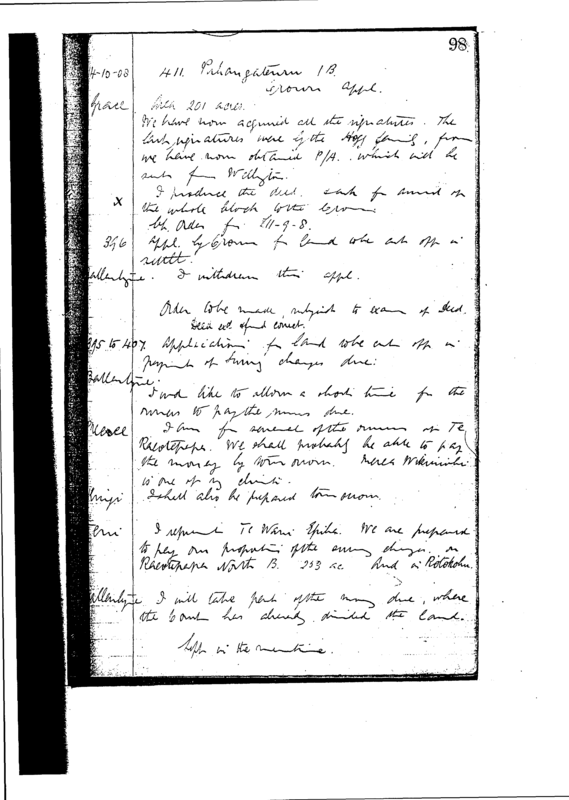 98
4-10-08 411. Pihangaterau 1B.
Crown Appl.
Grace Area 201 acres.
We have now acquired all the signatures. The
last signatures were by the family, from
we have now obtained P/A. which will be
sent from Wellington.
I produce the deed. ask for award of
x the whole block to the Crown.
Ch. Order for £11-9-8.
396 Appl. by Crown for land to be cut off in
Ballantyne. I withdraw this appl.
Order to be made, subject to exam of Deed.
Deed found correct.
395 to 407. Applications for land to be cut off in
payment of survey charges due:
Ballantyne: I wd like to allow a short time for the
owners to pay the sums due.
I am for several of the owners of Te
Raeotepapa. We shall probably be able to pay
the money by tomorrow. Merea
is one of my clients.
I shall also be prepared tomorrow.
I represent Te Wari. We are prepared
to pay our proportion of the survey charges on
Raeotepapa North B. 253 ac. And in Rotokahu.
Ballantyne I will take part of the money due, where
the Court has already divided the land.
Left in the meantime.